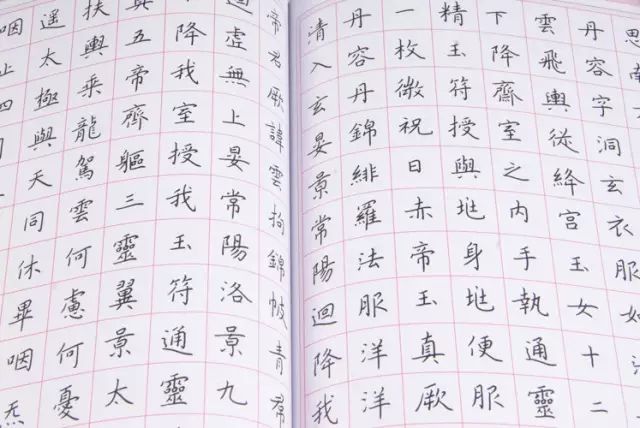 思南
丹容字洞玄衣服如
雲飛輿從絳宮玉女十二
下降齋室之內手執通靈
精玉符授與兆身兆便服
一枚微祝曰赤帝玉真厥
丹容丹錦緋羅法服洋洋
清入玄晏景常陽迴降我
帝君厥諱雲拘錦帔青帬
虛無上晏常陽洛景九
降我室授我玉符通靈
真五帝齊軀三靈翼景太
扶輿乘龍駕雲何慮何憂
遥太極與天同休畢咽炁
咽止四